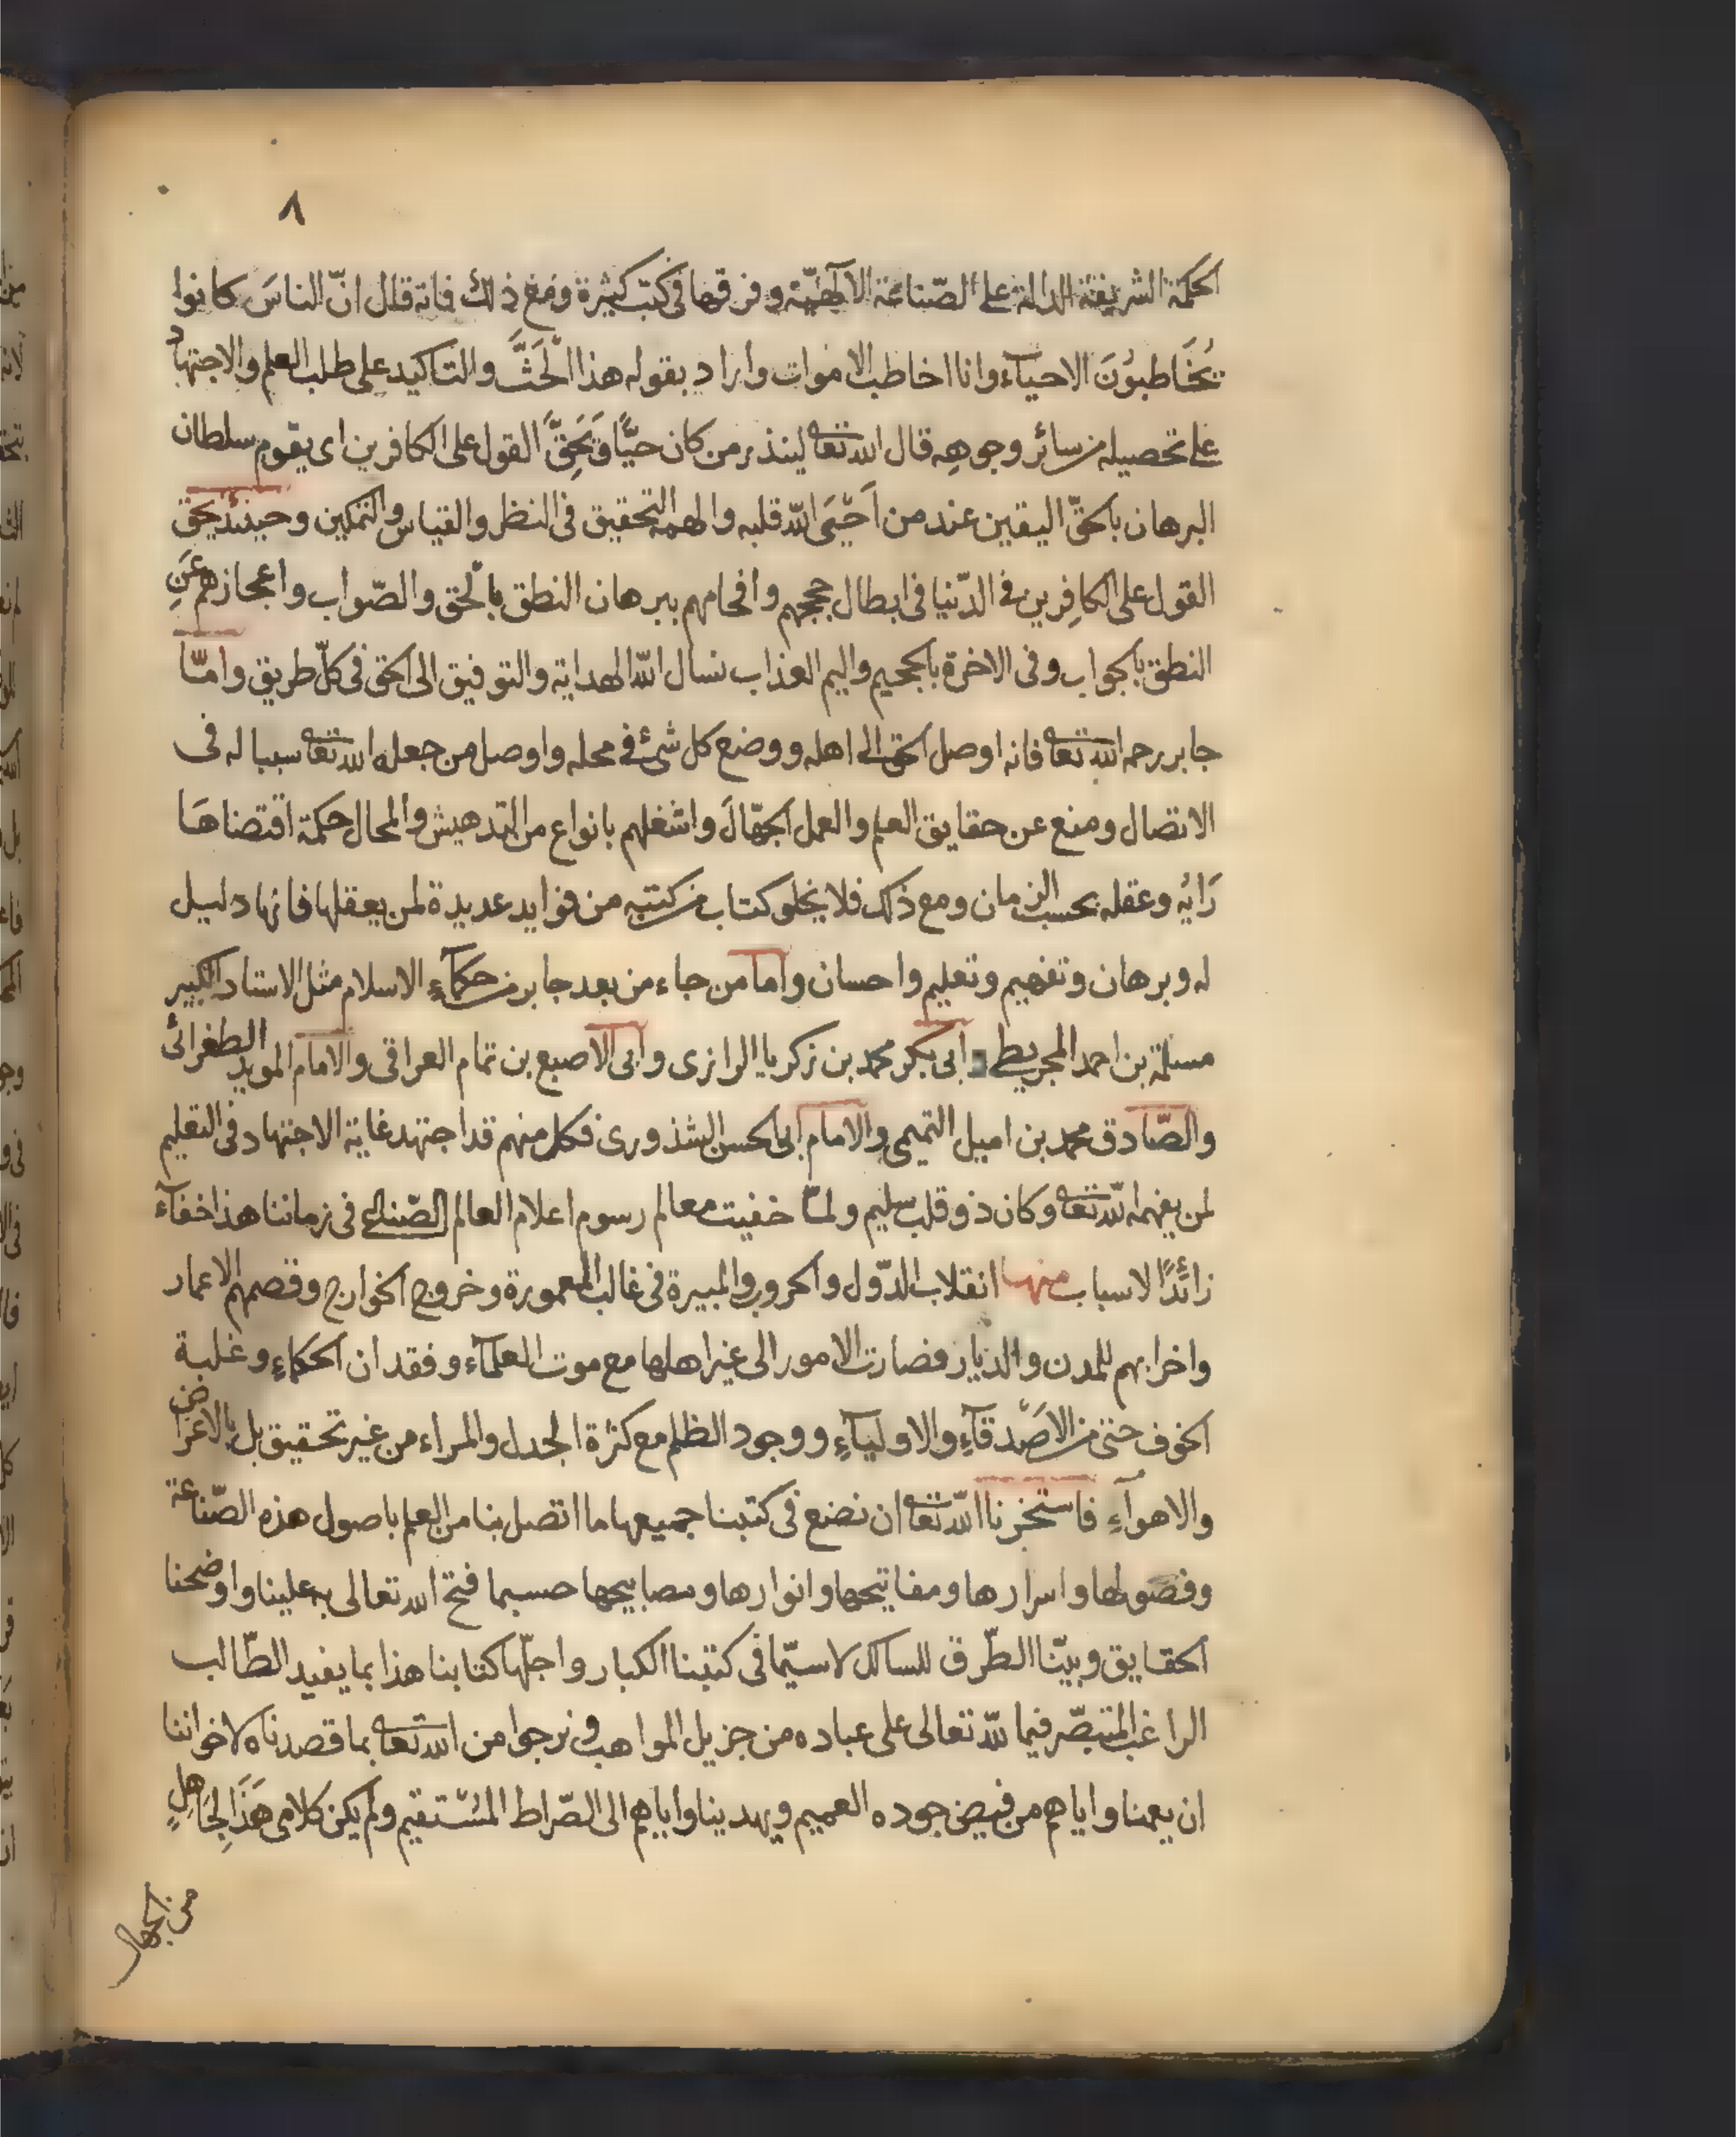 ٨
الحكمة الشريفة الدالة على الصّناعة الالهيّة وفرقها فى كتب كثيرة ومع ذلك فانه قال انّ الناسَ كانوا
يُخَاطبوُنَ الاحيآء وانا اخاطب الاموات واراد بقوله هذا الحَثَّ والتاكيد على طلب العلم والاجتهاد
على تحصيله من سائر وجوهِه قال الله تعا لينذر من كان حيًّا وَيَحِقَّ القول على الكافرين اى يقوم سلطان
البرهان بالحقّ اليقين عند من اَحْيَى الله قلبه والهمه التحقيق فى النظر والقياس والتمكين وحينئذ يحق
القول على الكافِرين فى الدّنيا فى ابطال حججهم وافحامهم ببرهان النطق بالْحق والصّواب واعجازهم عَنِ
النطق بالجواب وفى الاخرة بالجحيم واليم العذاب نسال الله الهداية والتوفيق الى الحق فى كلّ طريق وامّا
جابر رحمه الله تعا فانه اوصل الحق الى اهله ووضع كل شئ فى محله واوصل من جعله الله تعا سببا له فى
الاتصال ومنع عن حقايق العلم والعمل الجهّالَ واشغلهم بانواع من التدهيش والمحال حكمة اقتضاهَا
رَايُه وعقله بحسب الزمان ومع ذلك فلا يخلو كتاب من كتبه من فوايد عديدة لمن يعقلها فانها دليل
له وبرهان وتفهيم وتعليم واحسان واما من جاء من بعد جابر من حكمآءِ الاسلام مثل الاستاد الكبير
مسلمة بن احمد المجريطى وابى بكر محمد بن زكريا الرازى وابى الاصبع بن تمام العراقى والامام المويد الطغرائى
والصّادق محمد بن اميل التميمى والامام ابى الحسن الشذورى فكل منهم قد اجتهد غاية الاجتهاد فى التعليم
لمن يفهمه الله تعا وكان ذو قلب سليم ولمّا خفيت معالم رسوم اعلام العالم الصّناعى فى زماننا هذا خفآء
زائدًا لاسباب منها انقلاب الدّول والحروب والمبيرة فى غالب المعمورة وخروج الخوارج وقصمهم الاعمار
واخرابهم للمدن والديار فصارت الامور الى غير اهلها مع موت العلمآء وفقدان الحكماءِ وغلبة
الخوف حتى من الاَصْدقآءِ والاوليآءِ ووجود الظلم مع كثرة الجدل والمراء من غير تحقيق بل بالاغراض
والاهوآءِ فاستخرنا الله تعا ان نضع فى كتبنا جميعها ما اتصل بنا من العلم باصول هذه الصّناعة
وفصولها واسرارها ومفاتيحها وانوارها ومصابيحها حسبما فتح الله تعالى به علينا واوضحنا
الحقايق وبيّنا الطّرق للسالك لاسيّما فى كتبنا الكبار واجلّها كتابنا هذا بما يفيد الطّالب
الراغب المتبصّر فيما لله تعالى على عباده من جزيل المواهب ونرجوا من الله تعا بما قصدناه لاخواننا
ان يعمنا واياهم من فيض جوده العميم ويهدينا واياهم الى الصّراط المسْتقيم ولم يكن كلامى هَذَا لِجَاهِلٍ
من الجهال